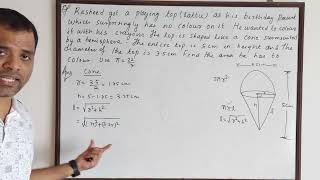 Q. Rasheed got a playing top (lattu) as his birthday present
which surprisingly has no colour on it. He wanted to colour
it with his crayons. The top is shaped like a cone surmounted
by a hemisphere. The entire top is 5 cm in height and the
diameter of the top is 3.5 cm. Find the area he has to
colour. Use π = 22/7
Ans
Cone
r = 3.5/2 = 1.75 cm
h = 5 - 1.75 = 3.25 cm
l = √r²+h²
= √(1.75)²+(3.25)²
2πr²
πrl
l = √r²+h²
r
h
l
5cm